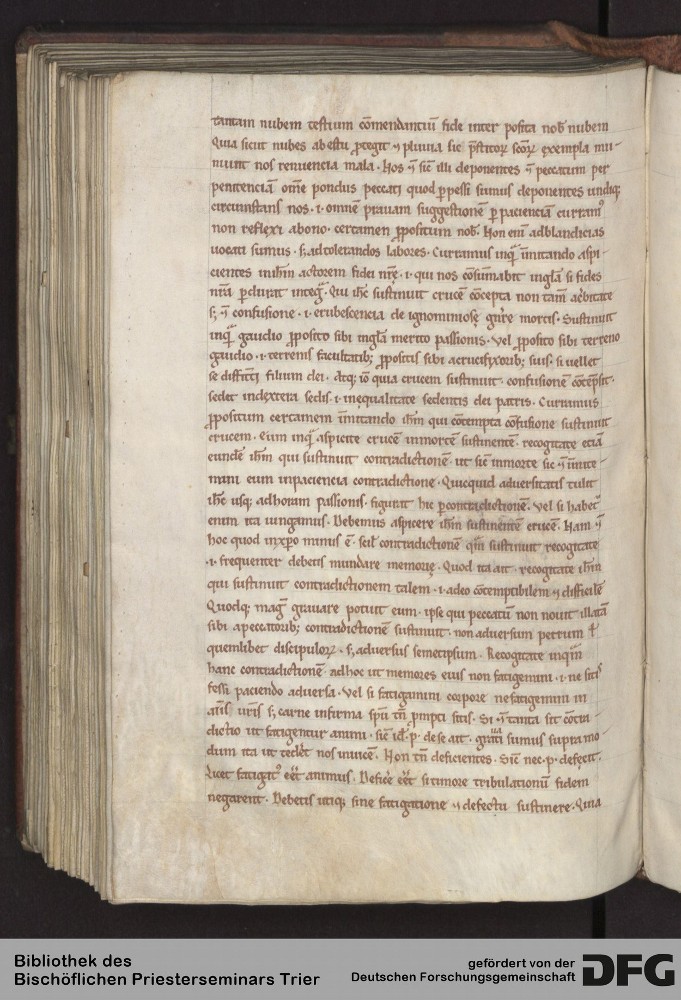 tantam nubem testium cōmendantiū fide inter posita nob̄ nubem
Quia sicut nubes ab estu ptegit ⁊ pluuia sic p̄stitoꝝ scōꝝ exempla mu-
niunt nos renitencia mala. Nos ḡ sic̄ illi deponentes ⁊ peccatum per
penitenciā om̄e pondus peccati quod pͥpessi sumus deponentes undiqꝫ
circumstans nos .i. omnem prauam suggestionē ꝑ pacienciā curramꝰ
non reflexi abono. certamen ꝓpositum nob̄. Non eni adblandicias
uocati sumus. sꝫ adtolerandos labores. Curramus inq̄ imitando aspi-
cientes inihm̄ actorem fidei nrē .i. qui nos cōsumabit ingl̄a si fides
nr̄a ꝑdurat inteḡ. Qui ih̄c sustinuit crucē cōcepta non tam̄ ac̄bitate
sꝫ ⁊ confusione .i. erubescencia de ignominiose gn̄re mortis. Sustinuit
inq̄ gaudio ꝓposito sibi ingl̄a merito passionis. Vel ꝓposito sibi terreno
gaudio .i. terrenis facultatibꝫ ꝓpositis sibi acrucifixoribꝫ suis. si uellet
se diffit̄i filium dei. Atqꝫ iō quia crucem sustinuit. confusionē cōtēpsit.
sedet indextera sedis .i. inequalitate sedentis dei patris. Curramus
ꝓpositum certamen imitando ihm̄ qui cōtempta cōfusione sustinuit
crucem. Eum inq̄ aspicite crucē inmortē sustinentē. recogitate etiā
eundē ihm̄ qui sustinuit contradictionē. ut sic̄ inmorte sic ⁊ imite-
mini eum inpaciencia contradictione. Quicquid aduersitatis tulit
ih̄c usqꝫ adhoram passionis. figurat hic ꝑcontradictionē. Vel si habet̄
enim ita iungamus. Debemus aspicere ihm̄ sustinentē crucē. Nam ⁊
hoc quod inxp̄o minus ē. scil̄ contradictionē qm̄ sustinuit recogitate
.i. frequenter debetis mundare memorie. Quod ita ait. recogitate ihm̄
qui sustinuit contradictionem talem .i. adeo cōtemptibilem ⁊ difficilē
Quodqꝫ maḡ grauare potuit eum. ipse qui peccatū non nouit illatā
sibi apeccatoribꝫ contradictionē sustinuit. non aduersum petrum ł
quemlibet discipuloꝝ. sꝫ aduersus semetipsum. Recogitate inquā
hanc contradictionē. adhoc ut memores eius non fatigemini .i. ne sitis
fessi paciendo aduersa. Vel si fatigamini corpore ne fatigemini in
aīis ur̄is sꝫ carne infirma sp̄u tn̄ prompti sitis. Si ⁊ tanta sit contra-
dictio ut fatigentur animi. sic̄ id̄ .p. de se ait. grauati sumus supra mo-
dum ita ut tederet nos uiuere. Non tn̄ deficientes. Sic̄ nec .p. defecit.
Licet fatigatꝰ eēt animus. Deficere eēt si timore tribulationū fidem
negarent. Debetis utiqꝫ sine fatigatione ⁊ defectu sustinere. Quia
Bibliothek des
Bischöflichen Priesterseminars Trier
gefördert von der
Deutschen Forschungsgemeinschaft
DFG